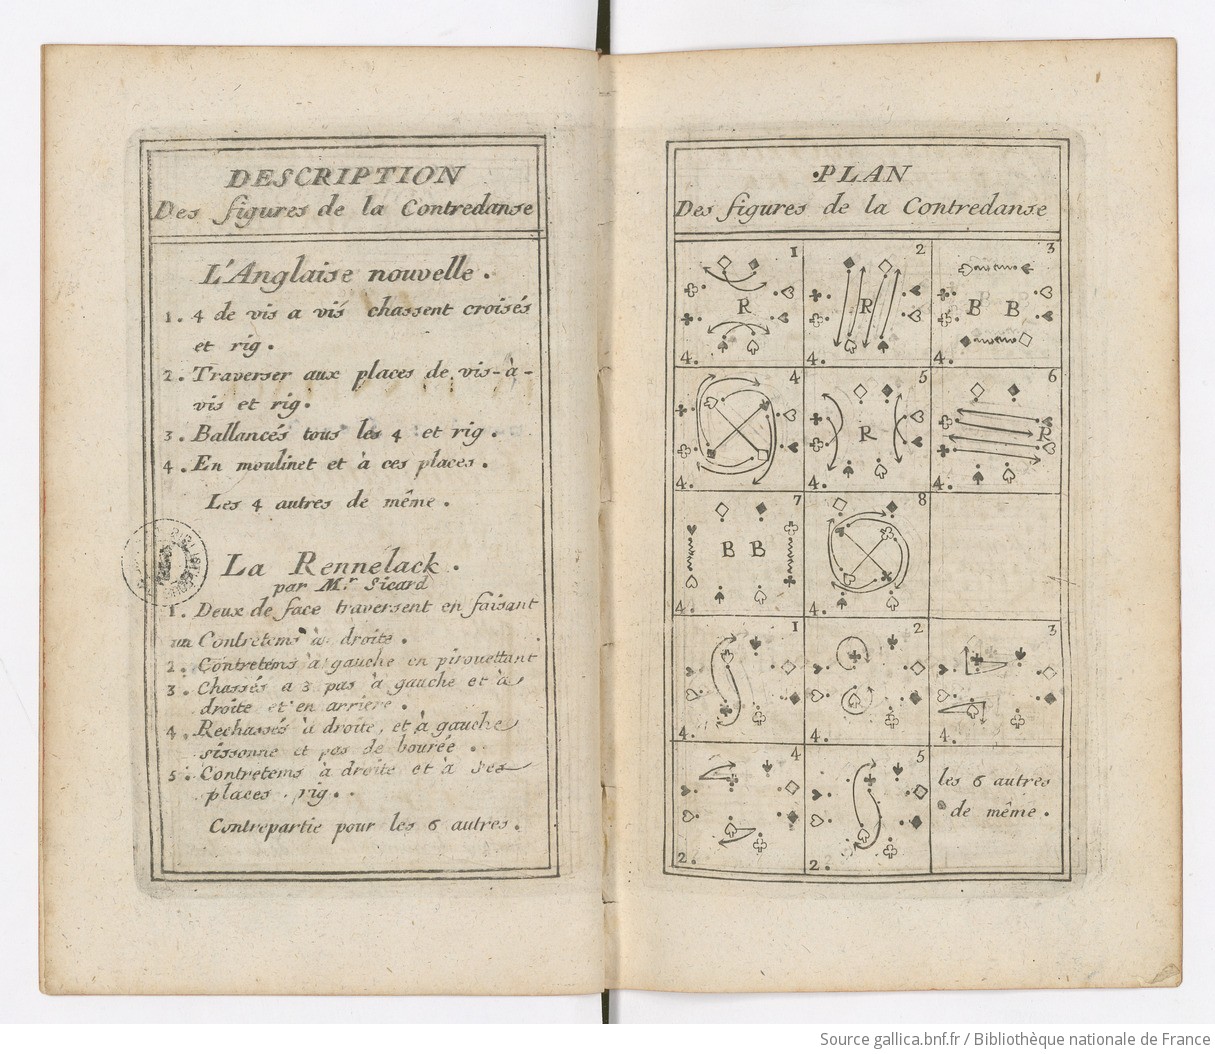 DESCRIPTION
Des figures de la Contredanse
L'Anglaise nouvelle.
1. 4 de vis a vis chassent croisés
et rig.
2. Traverser aux places de vis-à-
vis et rig.
3. Ballancés tous les 4 et rig.
4. En moulinet et à ces places.
Les 4 autres de même.
La Rennelack.
par Mr. Sicard
1. Deux de face traversent en faisant
un Contretems à droite.
2. Contretems à gauche en pirouettant
3. Chassés a 3 pas à gauche et à
droite et en arriere.
4. Rechassés à droite, et à gauche
sissonne et pas de bourée.
5. Contretems à droite et à ses
places. rig.
Contrepartie pour les 6 autres.
PLAN
Des figures de la Contredanse
1
R
4.
2
R
4.
3
B B
4.
4
4.
5
R
4.
6
R
4.
7
B B
4.
8
4.
1
4.
2
4.
3
4.
4
2.
5
2.
les 6 autres
de même.
Source gallica.bnf.fr / Bibliothèque nationale de France